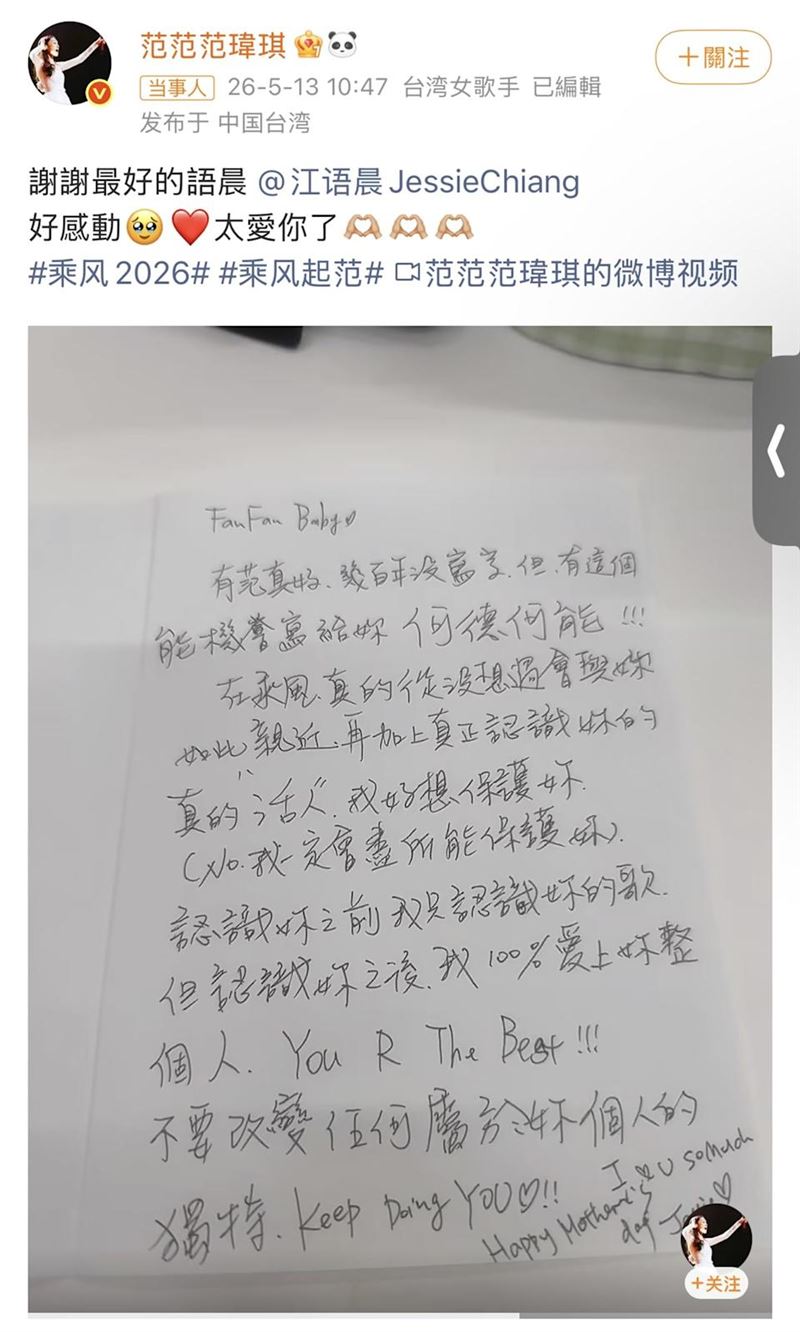 范范范瑋琪
当事人 26-5-13 10:47 台湾女歌手 已編輯
发布于 中国台湾
+關注
謝謝最好的語晨 @江语晨JessieChiang
好感動🥹❤️太愛你了🫶🏼🫶🏼🫶🏼
#乘风2026# #乘风起范# 范范范瑋琪的微博视频
FanFan Baby♡
有范真好、幾百年沒寫字、但、有這個
能機會寫給妳 何德何能!!!
在乘風、真的從沒想過會與妳
如此親近、再加上真正認識妳的
真的"活人"、我好想保護妳、
(No.我一定會盡所能保護妳)、
認識妳之前我只認識妳的歌、
但認識妳之後、我100%愛上妳整
個人、You R The Best!!!
不要改變任何屬於妳個人的
獨特、Keep Doing YOU♡!!
I ♡ U so Much
Happy Mother's
day Jessie♡
+关注